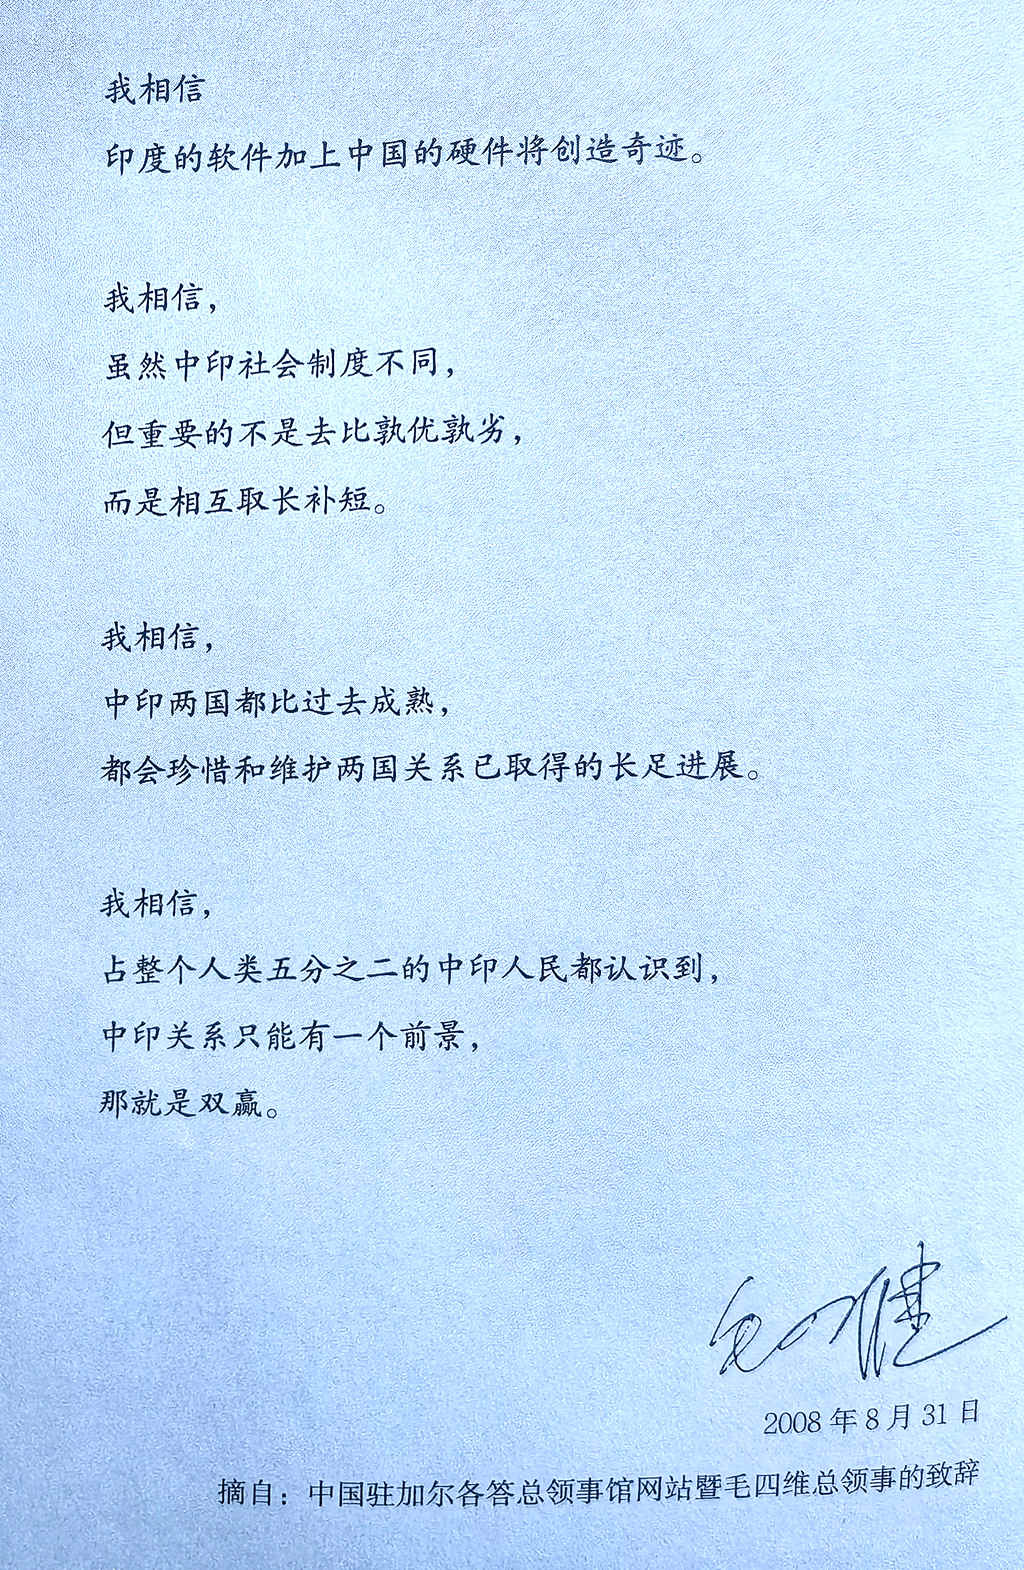 我相信
印度的软件加上中国的硬件将创造奇迹。
我相信，
虽然中印社会制度不同，
但重要的不是去比孰优孰劣，
而是相互取长补短。
我相信，
中印两国都比过去成熟，
都会珍惜和维护两国关系已取得的长足进展。
我相信，
占整个人类五分之二的中印人民都认识到，
中印关系只能有一个前景，
那就是双赢。
2008年8月31日
摘自：中国驻加尔各答总领事馆网站暨毛四维总领事的致辞